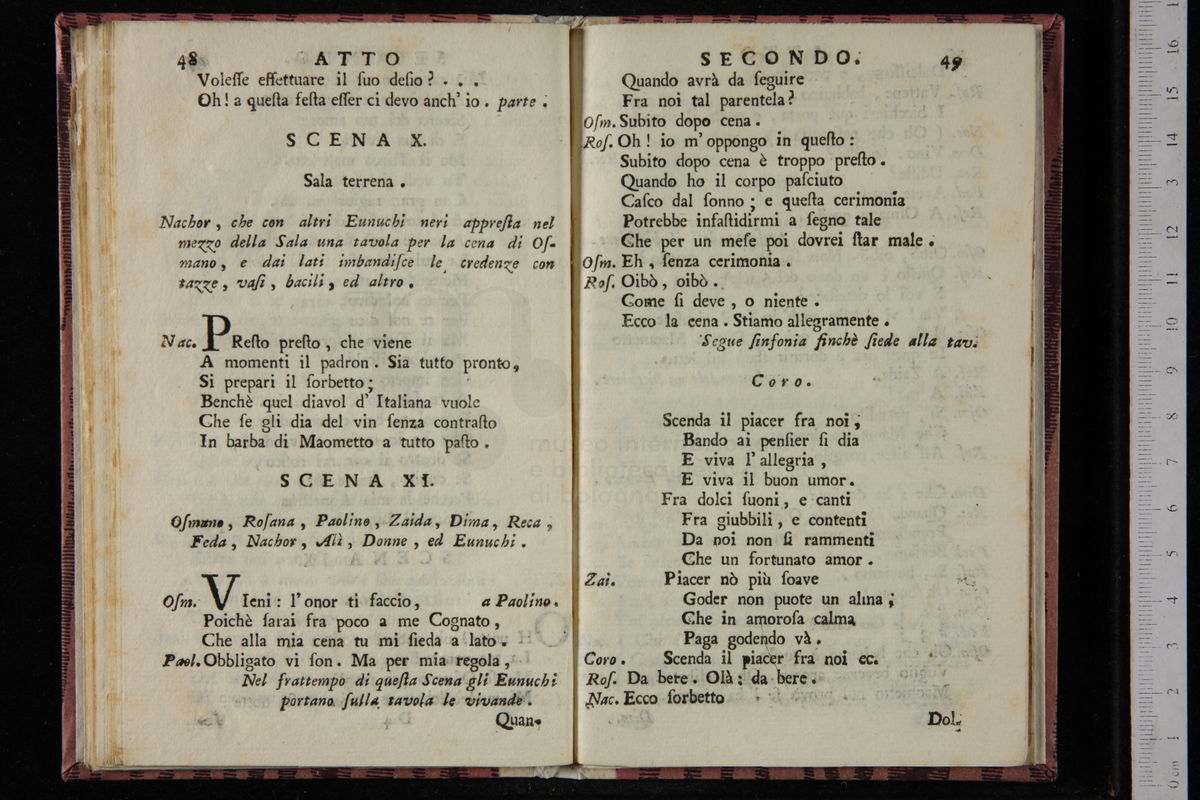 48 ATTO
Voleſſe effettuare il ſuo deſio ? . . .
Oh! a queſta feſta eſſer ci devo anch' io . parte .
SCENA X.
Sala terrena .
Nachor , che con altri Eunuchi neri appreſta nel
mezzo della Sala una tavola per la cena di Oſ-
mano , e dai lati imbandiſce le credenze con
tazze , vaſi , bacili , ed altro .
Nac. PReſto preſto , che viene
A momenti il padron . Sia tutto pronto,
Si prepari il ſorbetto ;
Benchè quel diavol d' Italiana vuole
Che ſe gli dia del vin ſenza contraſto
In barba di Maometto a tutto paſto .
SCENA XI.
Oſmano , Roſana , Paolino , Zaida , Dima , Reca ,
Feda , Nachor , Alì , Donne , ed Eunuchi .
Oſm. VIeni : l'onor ti faccio, a Paolino.
Poichè ſarai fra poco a me Cognato ,
Che alla mia cena tu mi ſieda a lato .
Paol. Obbligato vi ſon . Ma per mia regola ,
Nel frattempo di queſta Scena gli Eunuchi
portano ſulla tavola le vivande .
Quan-
SECONDO. 49
Quando avrà da ſeguire
Fra noi tal parentela?
Oſm. Subito dopo cena .
Roſ. Oh ! io m' oppongo in queſto :
Subito dopo cena è troppo preſto .
Quando ho il corpo paſciuto
Caſco dal ſonno ; e queſta cerimonia
Potrebbe infaſtidirmi a ſegno tale
Che per un meſe poi dovrei ſtar male .
Oſm. Eh , ſenza cerimonia .
Roſ. Oibò , oibò .
Come ſi deve , o niente .
Ecco la cena . Stiamo allegramente .
Segue ſinfonia finchè ſiede alla tav.
Coro .
Scenda il piacer fra noi ;
Bando ai penſier ſi dia
E viva l' allegria ,
E viva il buon umor .
Fra dolci ſuoni , e canti
Fra giubbili , e contenti
Da noi non ſi rammenti
Che un fortunato amor .
Zai. Piacer nò più ſoave
Goder non puote un alma ;
Che in amoroſa calma
Paga godendo và .
Coro . Scenda il piacer fra noi ec.
Roſ. Da bere . Olà : da bere .
Nac. Ecco ſorbetto
Dol.